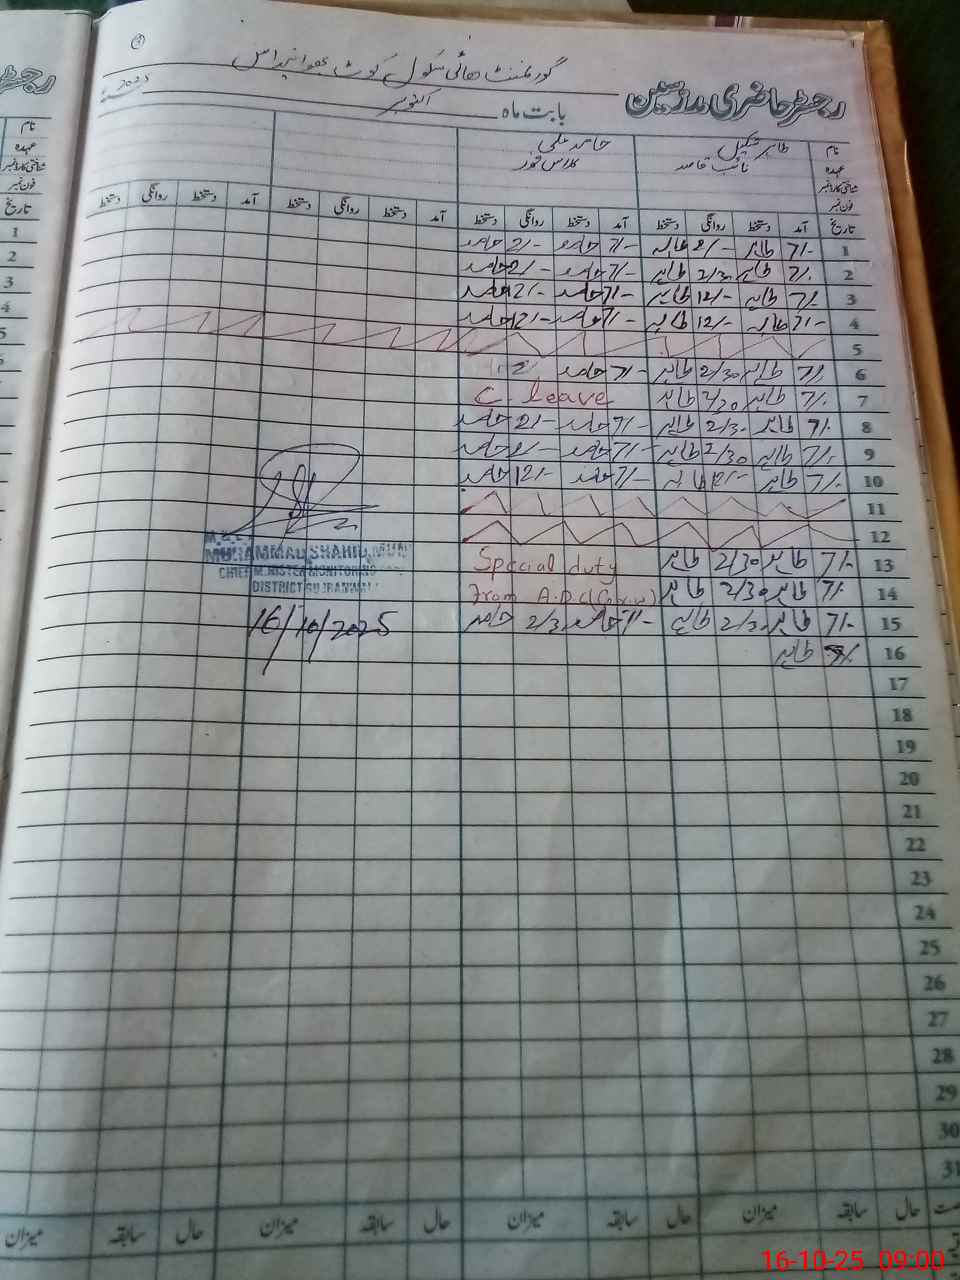 رجسٹر حاضری مدرسین
گورنمنٹ ہائی سکول کوٹ
بابت ماہ اکتوبر 2025
نام طاہر شکیل حامد علی
عہدہ نائب قاصد کلاس فور
شناختی کارڈ نمبر
فون نمبر
تاریخ آمد دستخط روانگی دستخط آمد دستخط روانگی دستخط آمد دستخط روانگی دستخط آمد دستخط روانگی دستخط
1 7/- طاہر 2/- طاہر 7/- حامد 2/- حامد
2 7/- طاہر 2/30 طاہر 7/- حامد 2/- حامد
3 7/- طاہر 12/- طاہر 7/- حامد 12/- حامد
4 7/- طاہر 12/- طاہر 7/- حامد 12/- حامد
5
6 7/- طاہر 2/30 طاہر 7/- حامد
7 7/- طاہر 2/30 طاہر C. leave
8 7/- طاہر 2/30 طاہر 7/- حامد 2/- حامد
9 7/- طاہر 2/30 طاہر 7/- حامد 2/- حامد
10 7/- طاہر 12/- طاہر 7/- حامد 12/- حامد
11
12
13 7/- طاہر 2/30 طاہر Special duty
14 7/- طاہر 2/30 طاہر From A.D.C
15 7/- طاہر 2/30 طاہر 7/- حامد 2/3 حامد
16 طاہر
MUHAMMAD SHAHID
CHIEF MINISTER MONITORING
DISTRICT GUJRANWALA
16/10/2025
17
18
19
20
21
22
23
24
25
26
27
28
29
30
31
حال سابقہ میزان حال سابقہ میزان حال سابقہ میزان حال سابقہ میزان
16-10-25 09:00